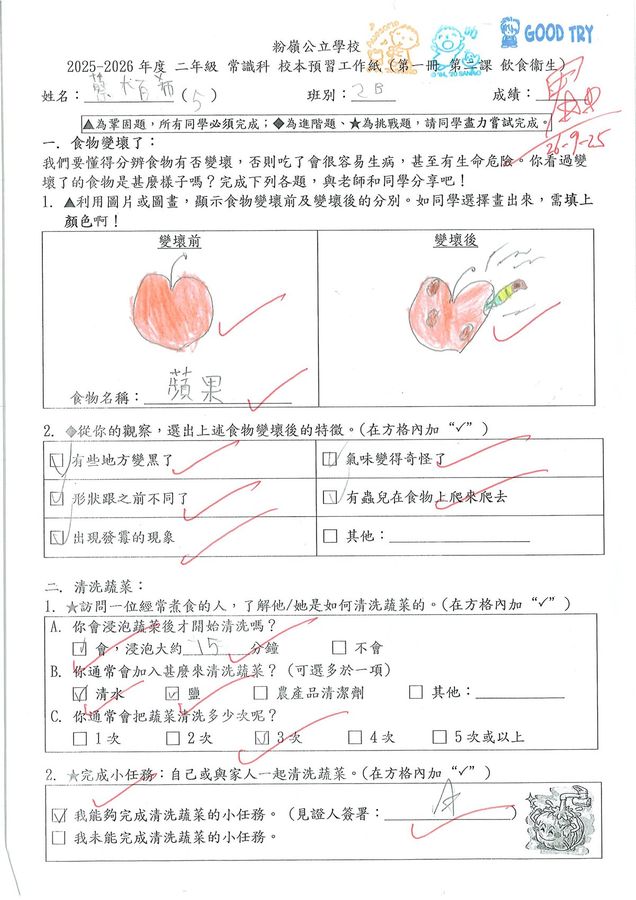 粉嶺公立學校
GOOD TRY
2025-2026 年度 二年級 常識科 校本預習工作紙 (第一冊 第二課 飲食衞生)
姓名： (5) 班別：2B 成績：
26-9-25
▲為鞏固題，所有同學必須完成；◆為進階題、★為挑戰題，請同學盡力嘗試完成。
一. 食物變壞了：
我們要懂得分辨食物有否變壞，否則吃了會很容易生病，甚至有生命危險。你看過變
壞了的食物是甚麼樣子嗎？完成下列各題，與老師和同學分享吧！
1. ▲利用圖片或圖畫，顯示食物變壞前及變壞後的分別。如同學選擇畫出來，需填上
顏色啊！
變壞前 變壞後
食物名稱：蘋果
2. ◆從你的觀察，選出上述食物變壞後的特徵。(在方格內加 “✓” )
☑ 有些地方變黑了 ☑ 氣味變得奇怪了
☑ 形狀跟之前不同了 ☑ 有蟲兒在食物上爬來爬去
☑ 出現發霉的現象 □ 其他：
二. 清洗蔬菜：
1. ★訪問一位經常煮食的人，了解他/她是如何清洗蔬菜的。(在方格內加 “✓” )
A. 你會浸泡蔬菜後才開始清洗嗎？
☑ 會，浸泡大約 15 分鐘 □ 不會
B. 你通常會加入甚麼來清洗蔬菜？ (可選多於一項)
☑ 清水 ☑ 鹽 □ 農產品清潔劑 □ 其他：
C. 你通常會把蔬菜清洗多少次呢？
□ 1 次 □ 2 次 ☑ 3 次 □ 4 次 □ 5 次或以上
2. ★完成小任務：自己或與家人一起清洗蔬菜。(在方格內加 “✓” )
☑ 我能夠完成清洗蔬菜的小任務。 (見證人簽署： )
□ 我未能完成清洗蔬菜的小任務。